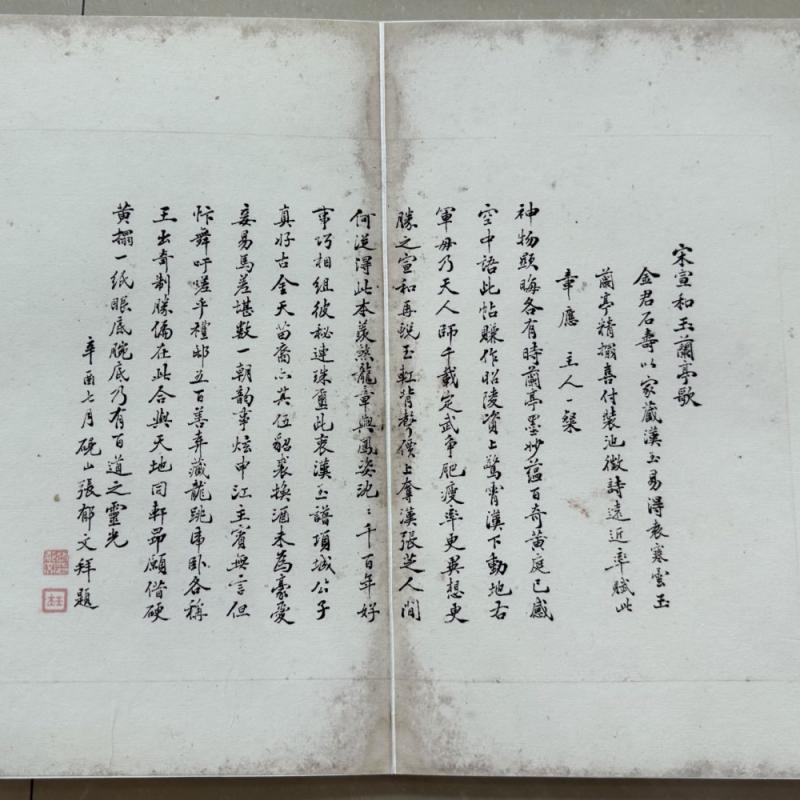 宋宣和玉蘭亭歌
金君石壽以家藏漢玉易得袁寒雲玉
蘭亭精搨喜付裝池徵詩遠近率賦此
章應 主人一粲
神物顯晦各有時蘭亭墨妙蘊百奇黃庭已感
空中語此帖賺作昭陵資上驚霄漢下動地右
軍毋乃天人師千載定武爭肥瘦率更異想更
勝之宣和再蛻玉虹背聲價上奪漢張芝人間
何從得此本羨煞龍章與鳳姿沈沈千百年好
事巧相組彼秘連珠璽此衷漢玉譜項城公子
真好古金天苗裔亦其伍貂裘換酒未為豪愛
妾易馬差堪數一朝韵事炫申江主賓無言但
忭舞吁嗟乎禮邸五百善弆藏龍跳虎臥各稱
王出奇制勝偏在此合與天地同軒昂願借硬
黃搨一紙眼底腕底乃有百道之靈光
辛酉七月硯山張郁文拜題